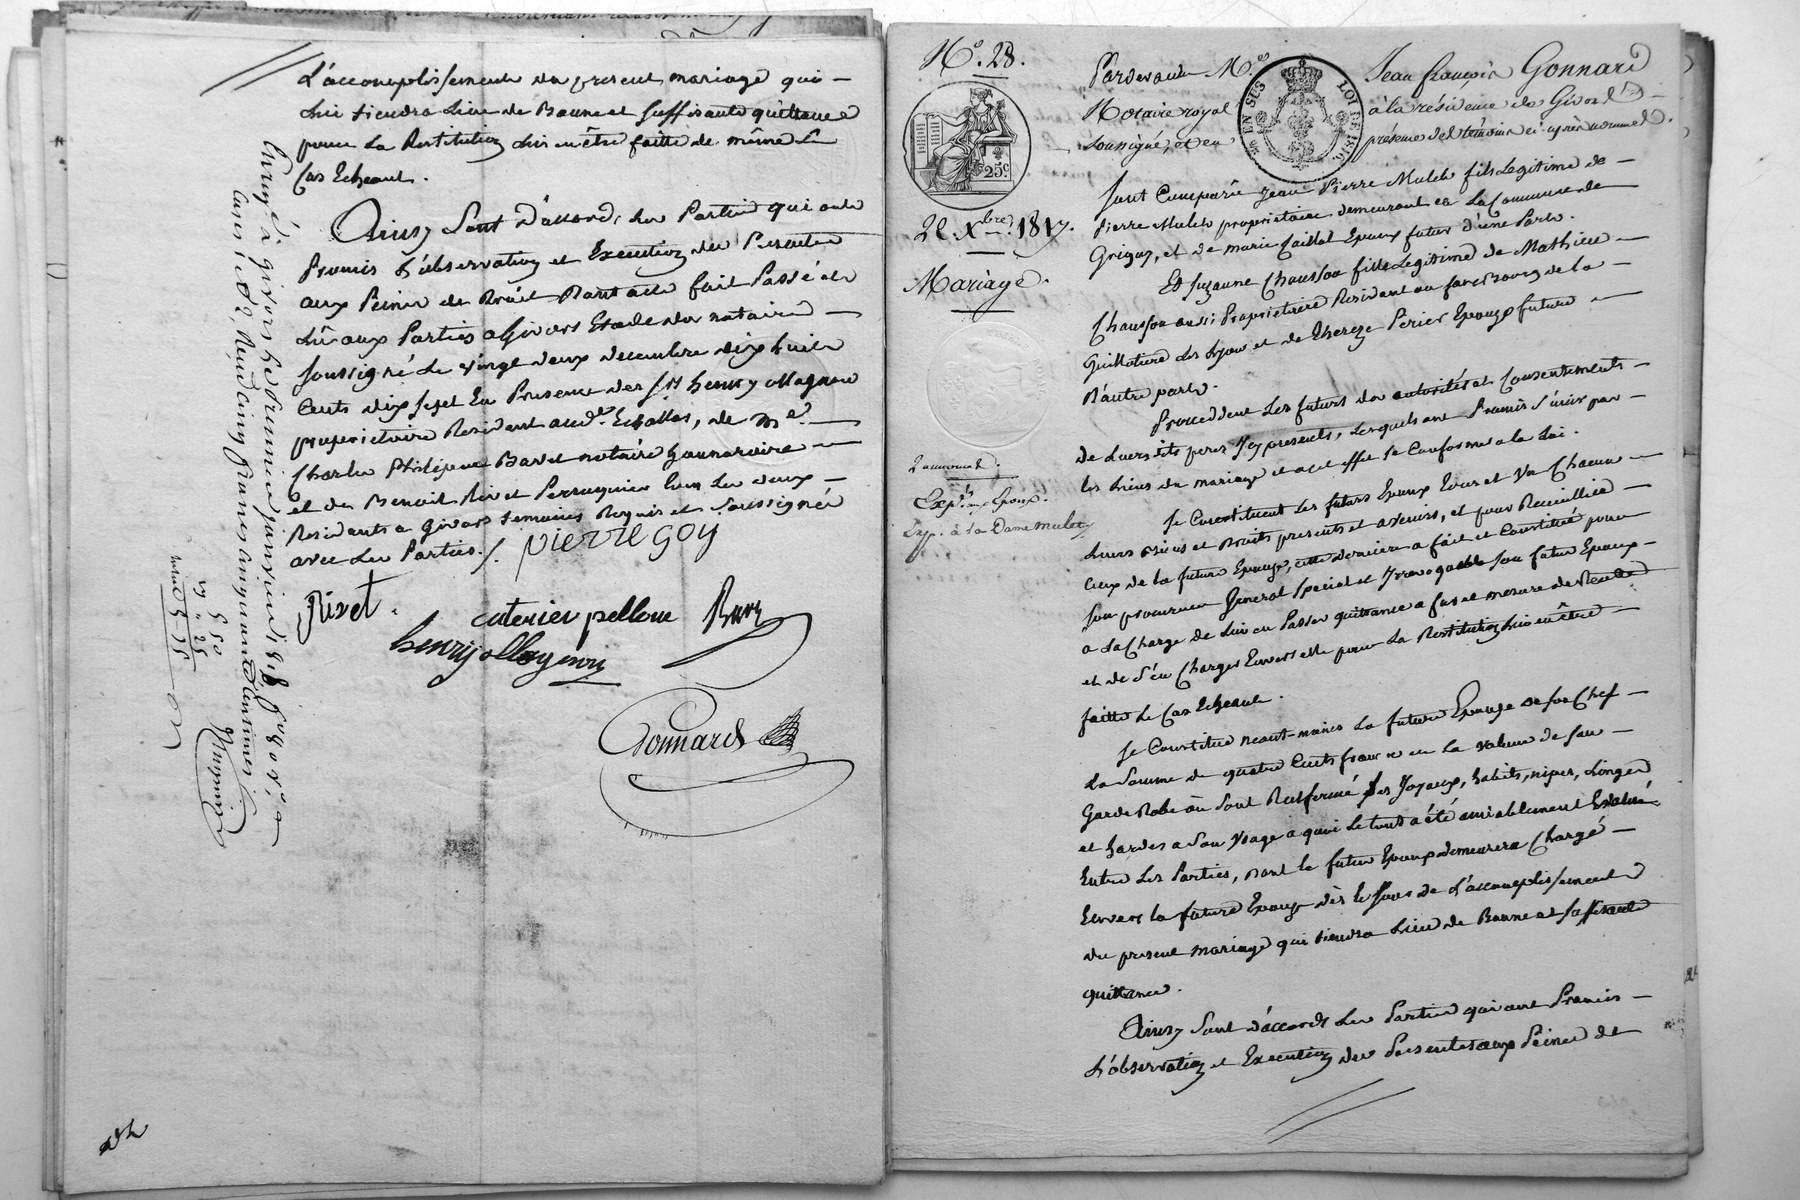 L'accomplissement du present mariage qui —
lui tiendra Lieu de Bonne et Suffisante quittance
pour La Restitution lui être faitte de même Le
Cas Echeant.
Ainsy Sont D'accord, les Parties qui ont
Promis L'observation et Execution des Presentes
aux Peines de Droit Dont acte fait Passé et
Lû aux Parties a Givors Etude du notaire —
soussigné Le vingt deux decembre dix huit
Cents dix sept En Presence des Srs henry ollagnon
proprietaire Resident aud. Echallas, de Me. —
Charles Philippe Baret notaire honnoraire —
et de Benoit Rivet Perruquier tous les deux —
Residants a Givors temoins Requis et Soussignés
avec les Parties./.
pierre goy
Rivet.
pellone
henry ollagnon
Gonnard
Enregé à givors le Premier janvier 1818
25
No. 28.
25c
22 Xbre 1817.
Mariage.
Expt. aux Epoux.
Exp. à la Dame mulet
EN SUS
LOI DE 1816
Pardevant Me. Jean françois Gonnard
Notaire royal à la résidence de Givors —
soussigné, et en présence des témoins ci-après nommés.
Sont Comparu Jean Pierre Mulet fils Legitime de —
Pierre Mulet proprietaire demeurant en La Commune de
Grigny, et de marie Epoux futur d'une Part.
Et Suzanne Chausson fille Legitime de Mathieu —
Chausson aussi Proprietaire Residant au fauxbourg de la —
Guillotiere Les Lyon et de Thereze Perier Epouse future —
D'autre part.
Proceddent Les futurs des autorités et Consentements —
de Leurs dits peres Icy presents, Lesquels ont Promis S'unir par —
les Liens du mariage et a cet effet Se Conformer a la Loi.
Se Constituent les futurs Epoux tous et Un Chacun —
Leurs Biens et Droits presents et avenirs, et pour Recueillir —
Ceux de la future Epouse, cette derniere a fait et Constitué pour —
Son procureur General Special et Irrevocable Son futur Epoux —
a la Charge de Lui en Passer quittance a fur et mesure de Recette
et de S'en Charger Envers elle pour La Restitution lui en être —
faitte Le Cas Echeant.
Se Constitue neant-moins La future Epouse de Son Chef —
La Somme de quatre Cents francs en La valeur de Sa —
Garde Robe ou Sont Renfermé Ses Joyaux, habits, nipes, Linges
et hardes a Son Usage a quoi Le tout a été amiablement Evalué
Entre Les Parties, Dont le futur Epoux demeurera Chargé —
Envers la future Epouse dès le Jour de L'accomplissement
du present mariage qui tiendra Lieu de Bonne et Suffisante
quittance.
Ainsy Sont D'accords les Parties qui ont Promis —
L'observation et Execution des Presentes aux Peines de